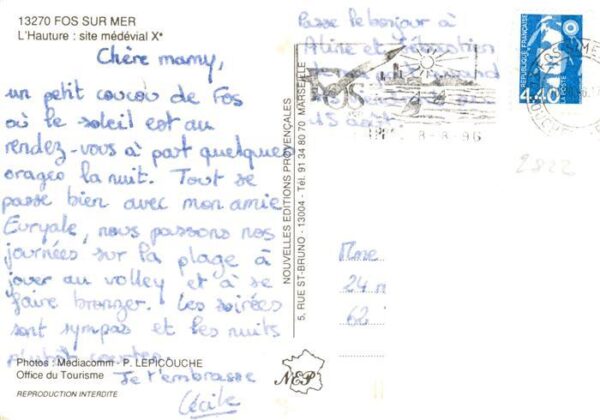 13270 FOS SUR MER
L'Hauture : site médévial Xᵉ
Chère mamy,
un petit coucou de Fos
où le soleil est au
rendez-vous à part quelques
orages la nuit. Tout se
passe bien avec mon amie
Euryale, nous passons nos
journées sur la plage à
jouer au volley et à se
faire bronzer. Les soirées
sont sympas et les nuits
plutôt courtes.
Je t'embrasse
Cécile
Photos : Médiacomm - P. LEPICOUCHE
Office du Tourisme
REPRODUCTION INTERDITE
NOUVELLES EDITIONS PROVENÇALES
5, RUE ST-BRUNO - 13004 - Tél. 91 34 80 70 MARSEILLE
NEP
Passe le bonjour à
Aline et Sébastien
15 août
FOS
8-8-96
REPUBLIQUE FRANÇAISE
4,40
LA POSTE
2822
Mme
24
62